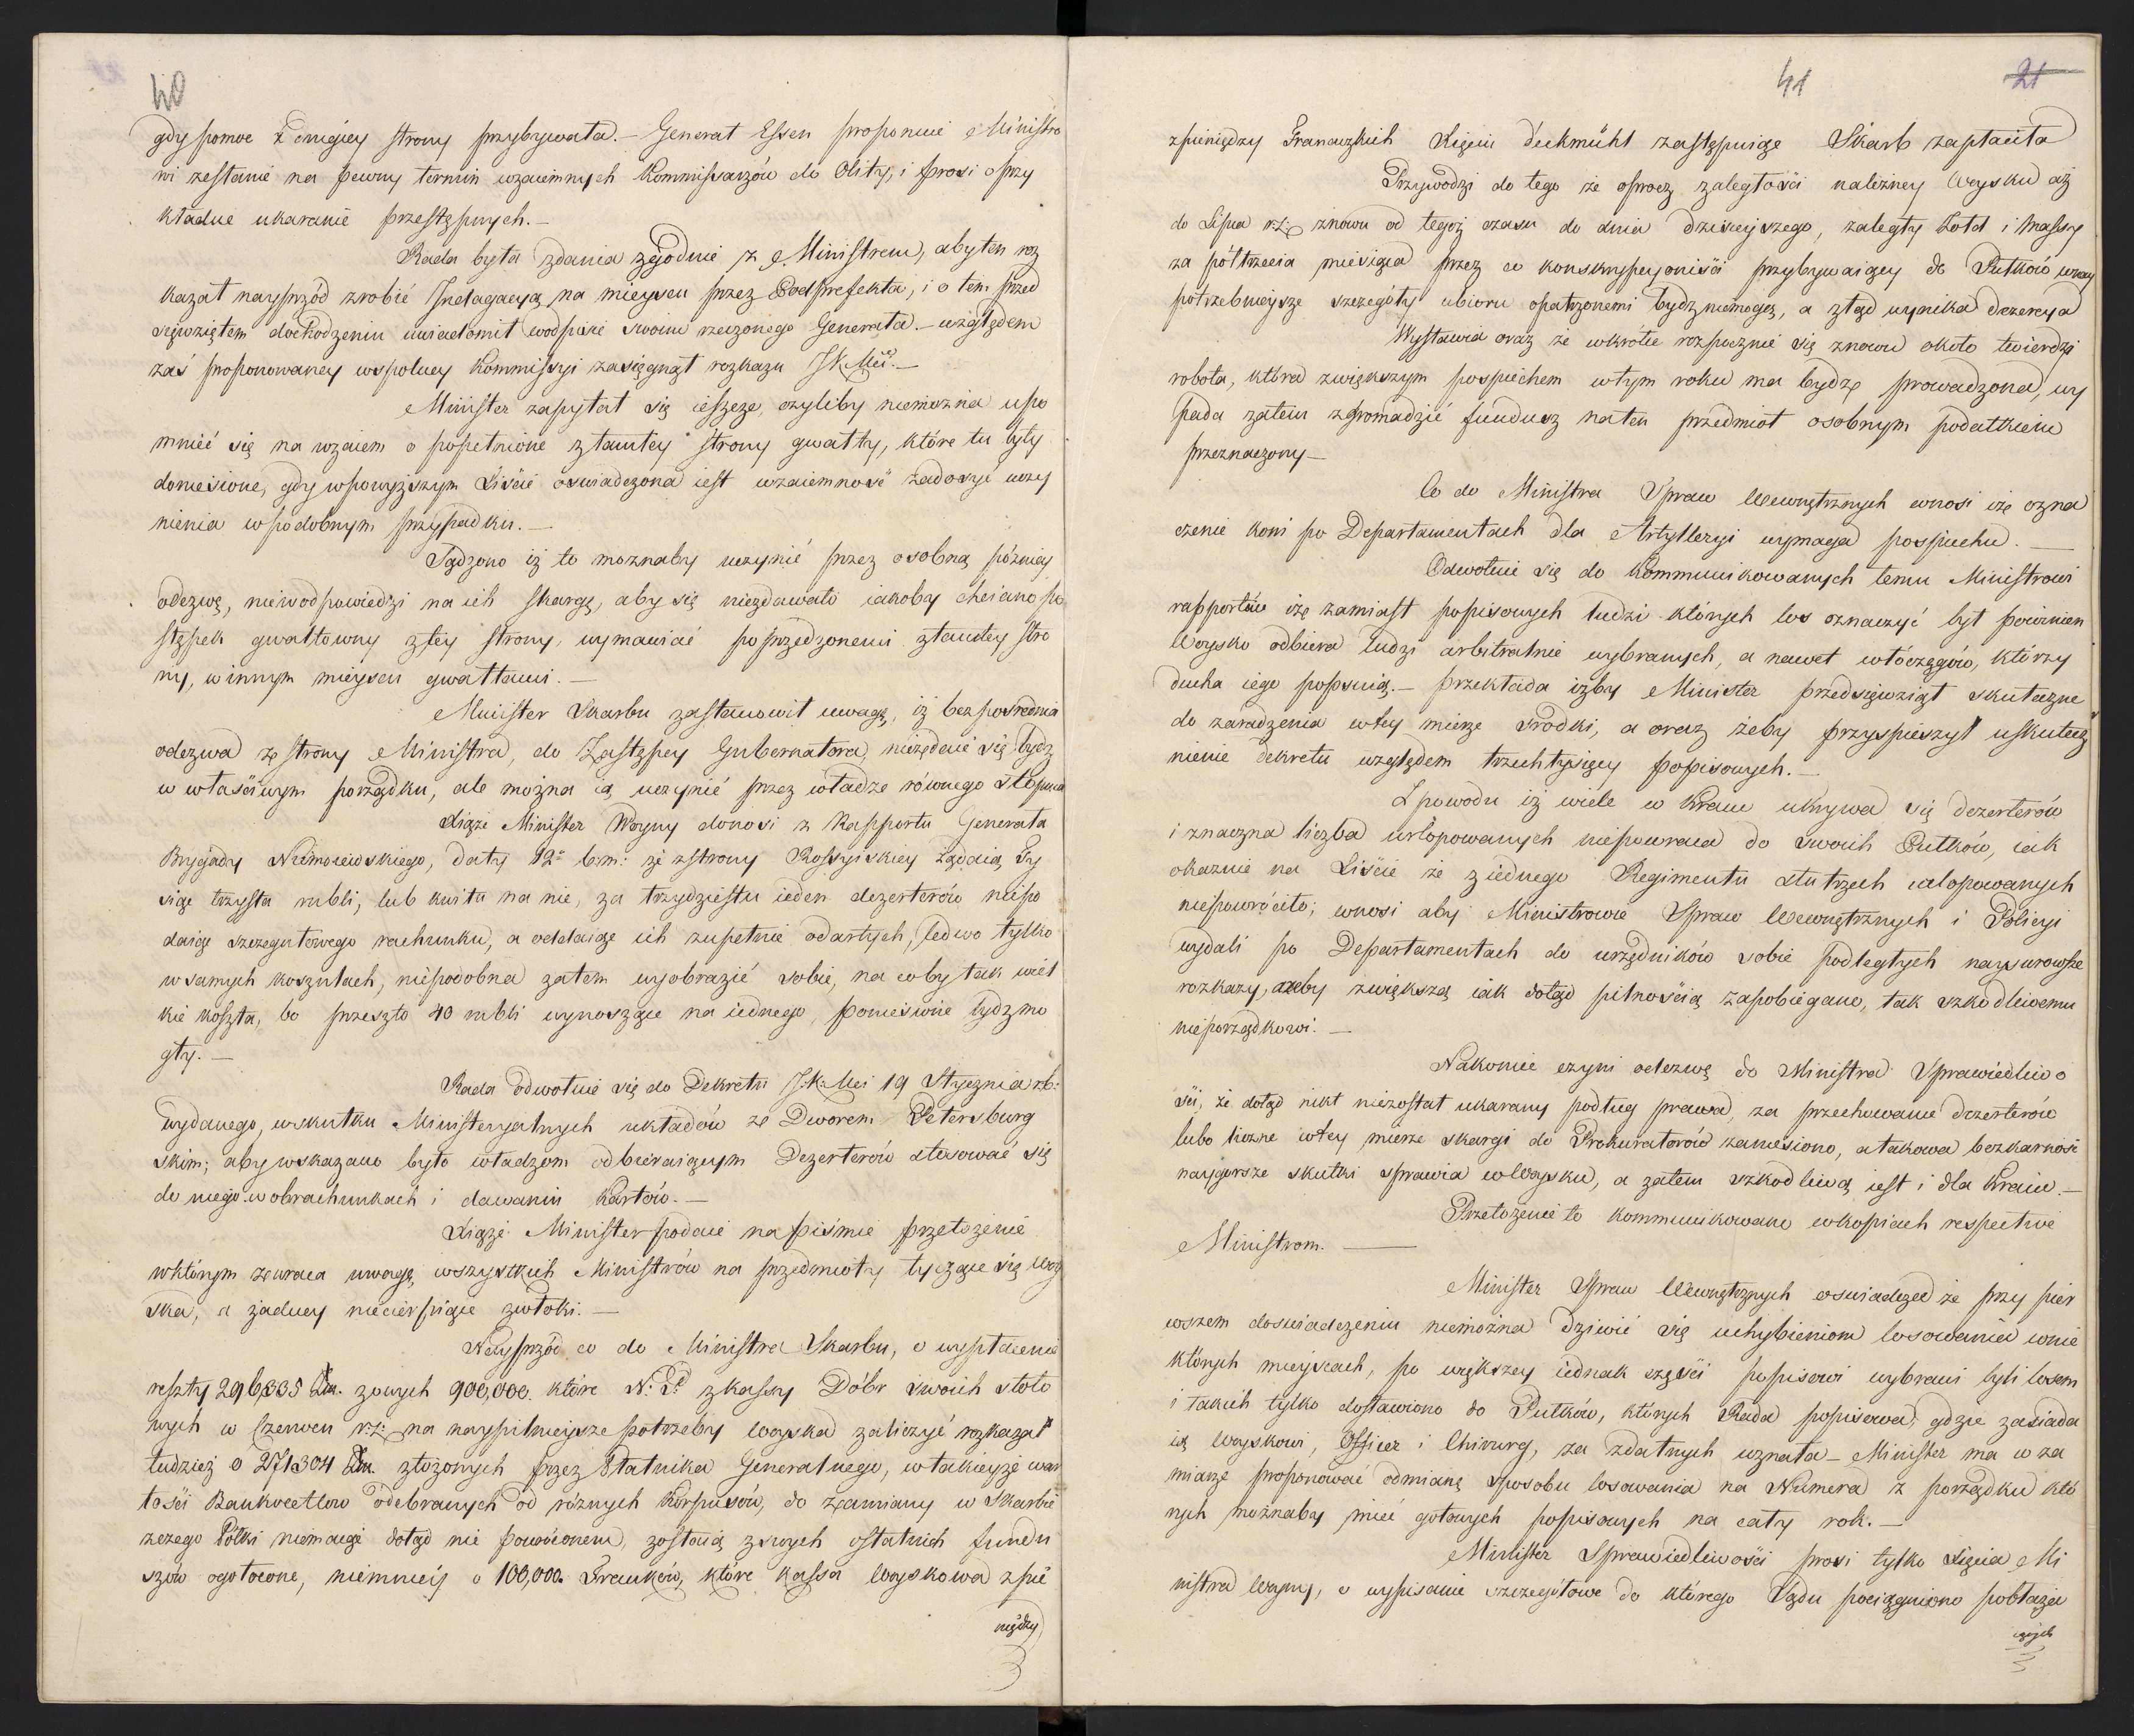 40
gdy pomoc z drugiey strony przybywała. – Generał Essen proponuie Ministro
wi zesłanie na pewny termin wzaiemnych Kommissarzów do Olity, i prosi o przy
kładne ukaranie przestępnych. –
Rada była zdania zgodnie z Ministrem, aby ten roz
kazał nayprzód zrobić Indagacyą na mieyscu przez Podprefekta, i o tem przed
sięwziętem dochodzeniu uwiadomił w odpisie swoim rzeczonego Generała. – względem
zaś proponowaney wspólney Kommissyi zasięgnął rozkazu JKMci. –
Minister zapytał się ieszcze, czyliby niemożna upo
mnieć się na wzaiem o popełnione z tamtey strony gwałty, które tu były
doniesione, gdy w powyższym Liście oświadczona iest wzaiemność zadosyć uczy
nienia w podobnym przypadku. –
Sądzono iż to możnaby uczynić przez osobną późniey
odezwę, nie w odpowiedzi na ich skargę, aby się niezdawało iakoby chciano po
stępek gwałtowny z tey strony, wymawiać poprzedzonemi z tamtey stro
ny, w innym mieyscu gwałtami. –
Minister Skarbu zastanowił uwagę, iż bezpośrednia
odezwa ze strony Ministra, do Zastępcy Gubernatora, niezdaie się bydź
w właściwym porządku, ale można ią uczynić przez władze równego stopnia
Xiąże Minister Woyny donosi z Rapportu Generała
Brygady Niemoiewskiego, daty 12º b.m: że z strony Rossyiskiey żądaią Ty
siąc trzysta rubli, lub kwitu na nie, za trzydziestu ieden dezerterów niepo
daiąc szczegułowego rachunku, a oddaiąc ich zupełnie odartych, ledwo tylko
w samych koszulach, niepodobna zatem wyobrazić sobie, na coby tak wiel
kie koszta, bo przeszło 40 rubli wynoszące na iednego, poniesione bydź mo
gły. –
Rada odwołuie się do Dekretu J.K.Mci 19 Stycznia r.b:
wydanego, w skutku Ministeryalnych układów ze Dworem Petersburg
skim; aby wskazano było władzom odbieraiącym Dezerterów stosować się
do niego w obrachunkach i dawaniu Kartów. –
Xiąże Minister podaie na piśmie przełożenie
w którym zwraca uwagę, wszystkich Ministrów na przedmioty tyczące się Woy
ska, a żadney niecierpiące zwłoki. –
Nayprzód co do Ministra Skarbu, o wypłacenie
reszty 296,335 Złł. z owych 900,000. które N: P. z kassy Dóbr swoich stoło
wych w Czerwcu r:z: na naypilnieysze potrzeby woyska zaliczyć rozkazał
tudzież o 271304 Złł. złożonych przez Płatnika Generalnego, w takieyże war
tości Bankocetlow odebranych od różnych Korpusów, do zamiany w Skarbie
czego Półki niemaiąc dotąd nie powróconem, zostaią z swych ostatnich fundu
szów ogołocone, niemniey o 100,000. Franków, które kassa Woyskowa z pie
niędzy
41
21
z pieniędzy Francuzkich Xięciu d'eckmühl zastępuiąc Skarb zapłaciła
Przywodzi do tego że oprocz zaległości należney Woysku aż
do Lipca r:z: znowu od tegoż czasu do dnia dzisieyszego, zaległy Żołd i Massy
za półtrzecia miesiąca przez co konskrypcyoniści przybywaiący do Pułków w nay
potrzebnieysze szczegóły ubioru opatrzonemi bydź niemogą, a ztąd wynika dezercya
Wystawia oraz że wkrótce rozpocznie się znowu około twierdzy
robota, która z większym pospiechem w tym roku ma bydź prowadzona, wy
pada zatem zgromadzić fundusz na ten przedmiot osobnym podatkiem
przeznaczony –
Co do Ministra Spraw Wewnętrznych wnosi iże ozna
czenie koni po Departamentach dla Artylleryi wymaga pospiechu. –
Odwołuie się do Kommunikowanych temu Ministrowi
rapportów iże zamiast popisowych ludzi których los oznaczyć był powinien
Woysko odbiera ludzi arbitralnie wybranych, a nawet włóczęgów, którzy
ducha iego popsuią. – przekłada iżby Minister przedsięwziął skuteczne
do zaradzenia w tey mierze środki, a oraz żeby przyspieszył uskutecz
nienie dekretu względem trzechtysięcy popisowych. –
Z powodu iż wiele w Kraiu ukrywa się dezerterów
i znaczna liczba urlopowanych niepowraca do swoich Pułków, iak
okazuie na Liście że z iednego Regimentu stu trzech urlopowanych
niepowróciło; wnosi aby Ministrowie Spraw Wewnętrznych i Policyi
wydali po Departamentach do urzędników sobie podległych naysurowsze
rozkazy, ażeby z większą iak dotąd pilnością zapobiegano, tak szkodliwemu
nieporządkowi. –
Nakoniec czyni odezwę do Ministra Sprawiedliwo
ści, że dotąd nikt niezostał ukarany podług prawa, za przechowanie dezerterów
lubo liczne w tey mierze skargi do Prokuratorów zaniesiono, a takowa bezkarność
naygorsze skutki sprawia w Woysku, a zatem szkodliwą iest i dla Kraiu. –
Przełożenie to kommunikowano w kopiach respective
Ministrom. –
Minister Spraw Wewnętrznych oswiadczył że przy pier
wszem doświadczeniu niemożna dziwić się uchybieniom losowania w nie
których mieyscach, po większey iednak części popisowi wybrani byli losem
i takich tylko dostawiono do Pułków, których Rada popisowa, gdzie zasiada
ią Woyskowi, Officer i Chirurg, za zdatnych uznała – Minister ma w za
miarze proponować odmianę sposobu losowania na Numera z porządku któ
rych możnaby mieć gotowych popisowych na cały rok. –
Minister Sprawiedliwości prosi tylko Xięcia Mi
nistra Woyny, o wypisanie szczegółowe do którego Sądu pociągniono pobłaża
iących